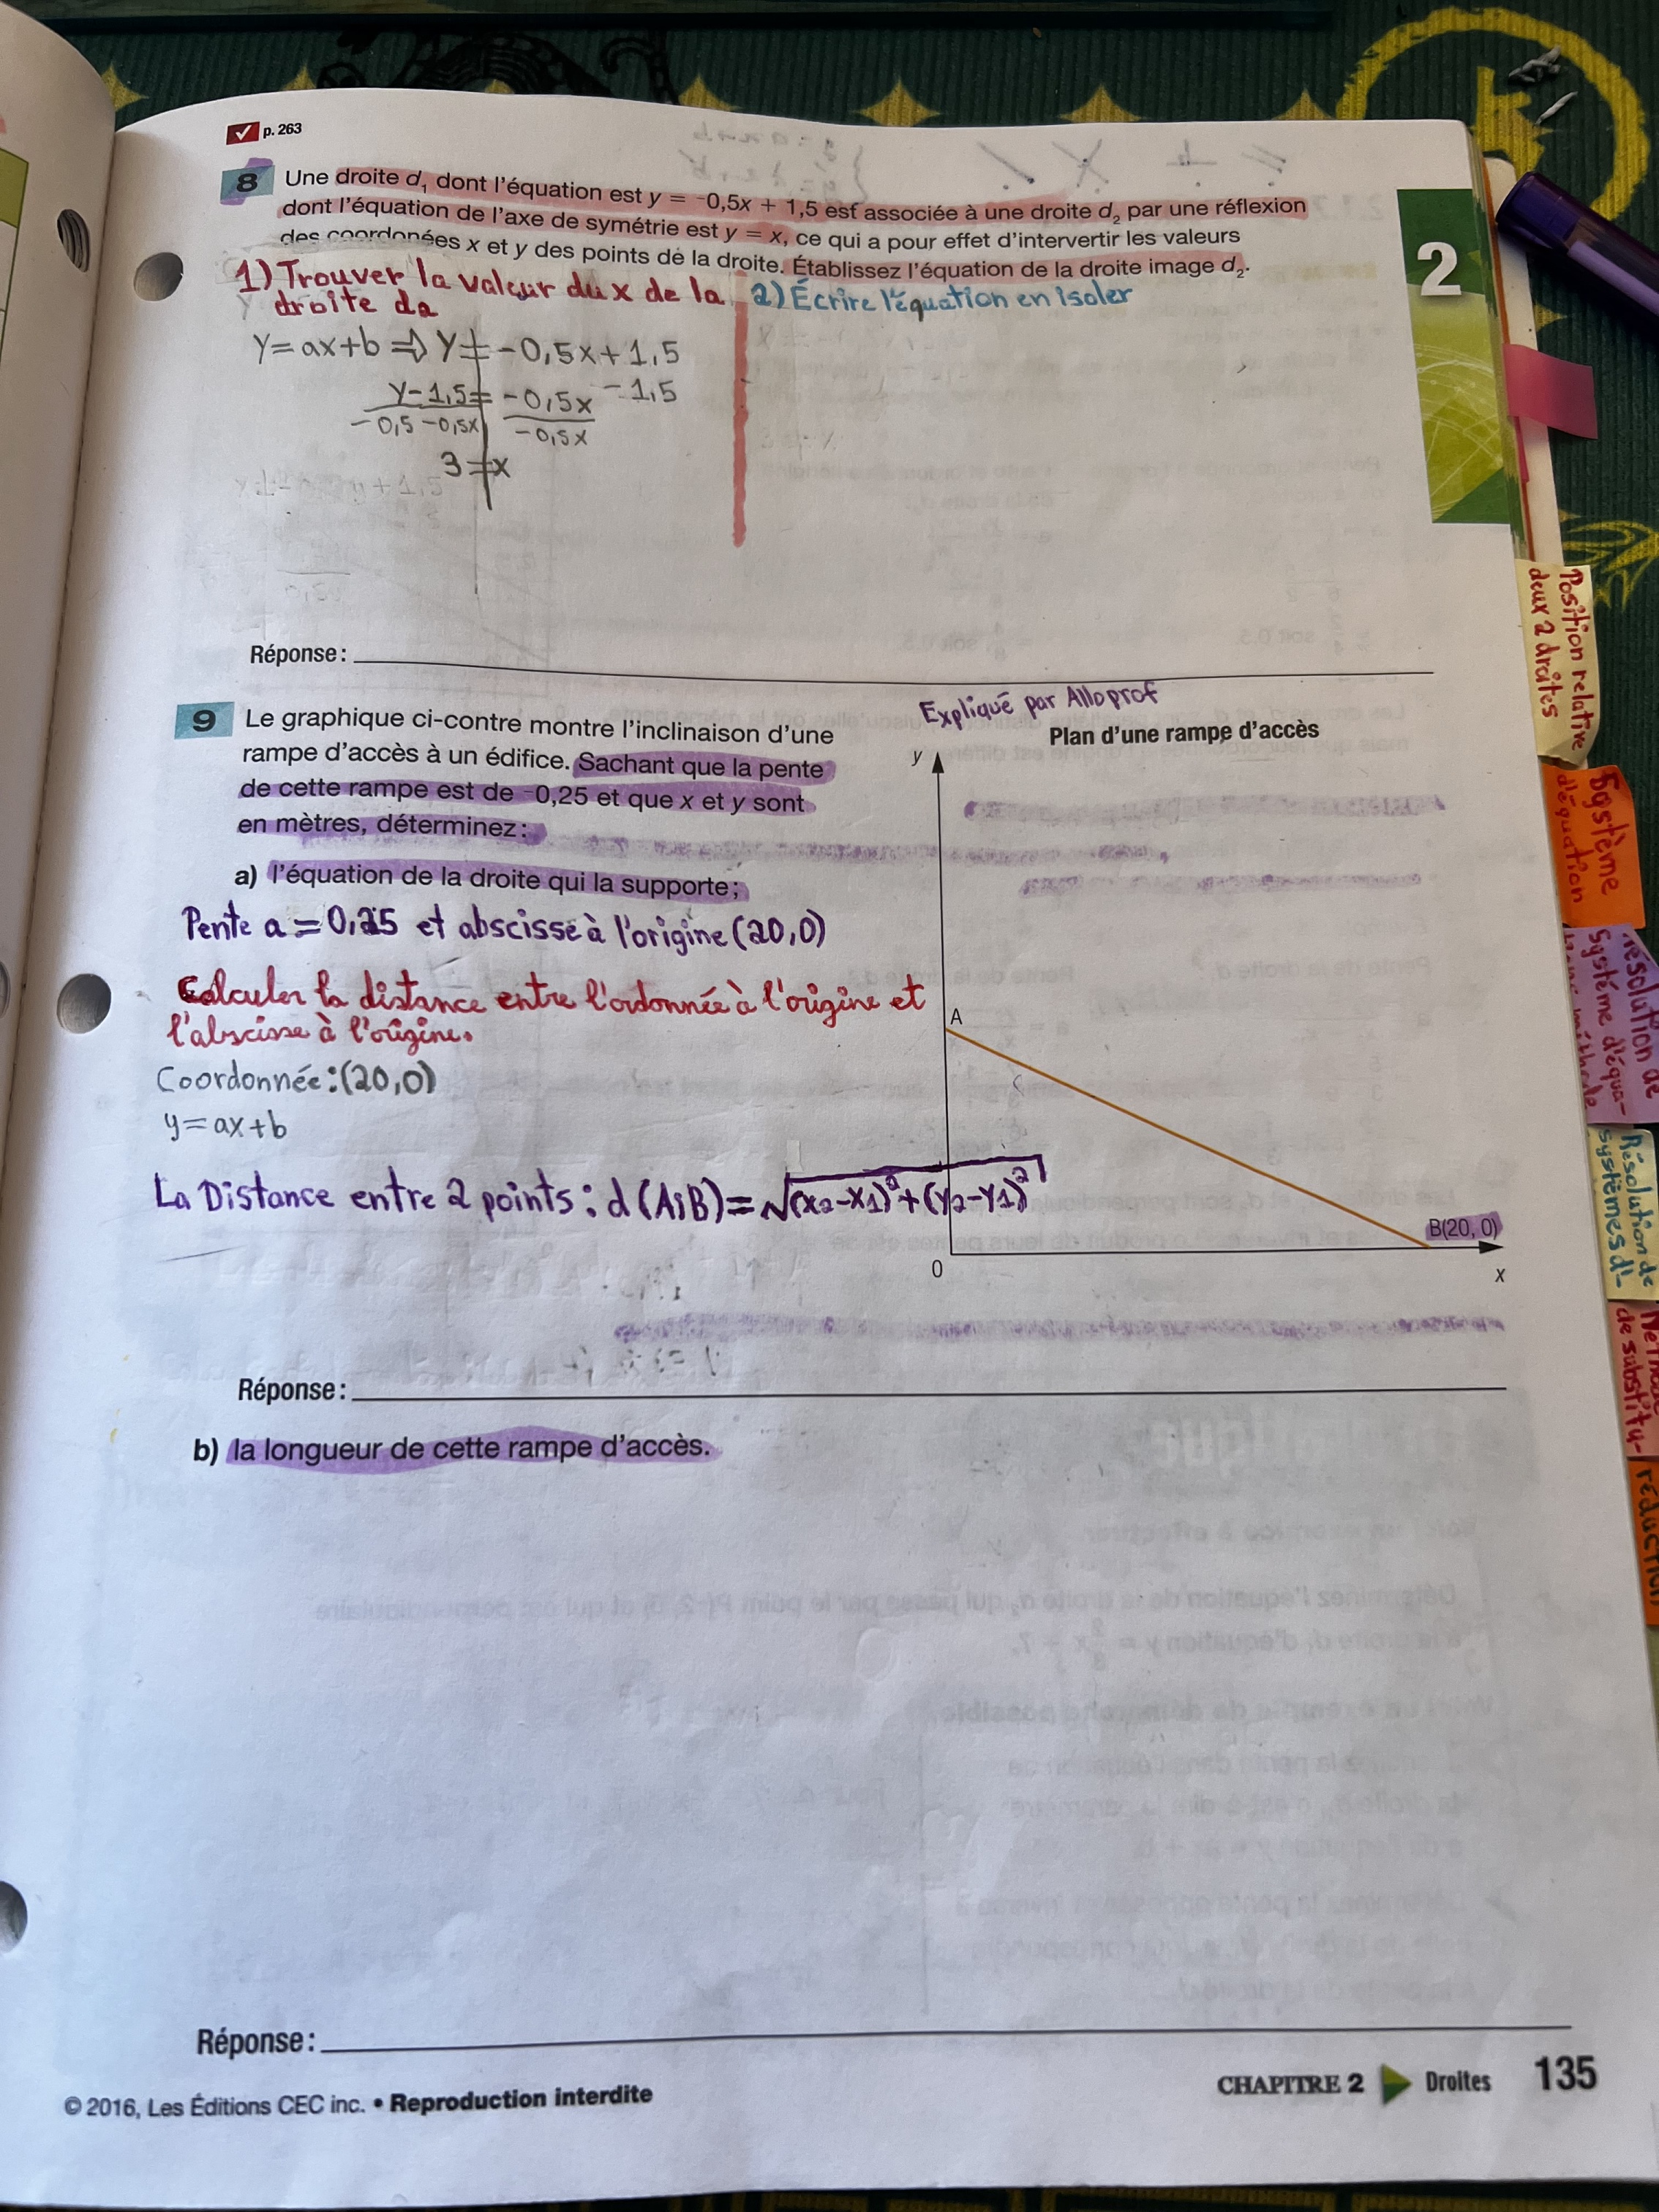 p. 263
8 Une droite d₁ dont l'équation est y = -0,5x + 1,5 est associée à une droite d₂ par une réflexion
dont l'équation de l'axe de symétrie est y = x, ce qui a pour effet d'intervertir les valeurs
des coordonnées x et y des points de la droite. Établissez l'équation de la droite image d₂.
1) Trouver la valeur du x de la
droite da
2) Écrire l'équation en isoler
y = ax+b ⇒ y = -0,5x+1,5
y-1,5 = -0,5x -1,5
-0,5 -0,5x -0,5x
3 = x
Réponse :
2
9 Le graphique ci-contre montre l'inclinaison d'une
rampe d'accès à un édifice. Sachant que la pente
de cette rampe est de -0,25 et que x et y sont
en mètres, déterminez :
a) l'équation de la droite qui la supporte ;
Pente a = 0,25 et abscisse à l'origine (20,0)
Calculer la distance entre l'ordonnée à l'origine et
l'abscisse à l'origine.
Coordonnée : (20,0)
y = ax+b
La Distance entre 2 points : d (A;B) = √(x2-x1)²+(y2-y1)²
Expliqué par Alloprof
Plan d'une rampe d'accès
y
A
B(20, 0)
0
x
Réponse :
b) la longueur de cette rampe d'accès.
Réponse :
© 2016, Les Éditions CEC inc. • Reproduction interdite
CHAPITRE 2 Droites 135
Position relative
deux 2 droites
d'équation
Résolution de
système d'équa-
Résolution de
systèmes d'-
de substitu-
réduction